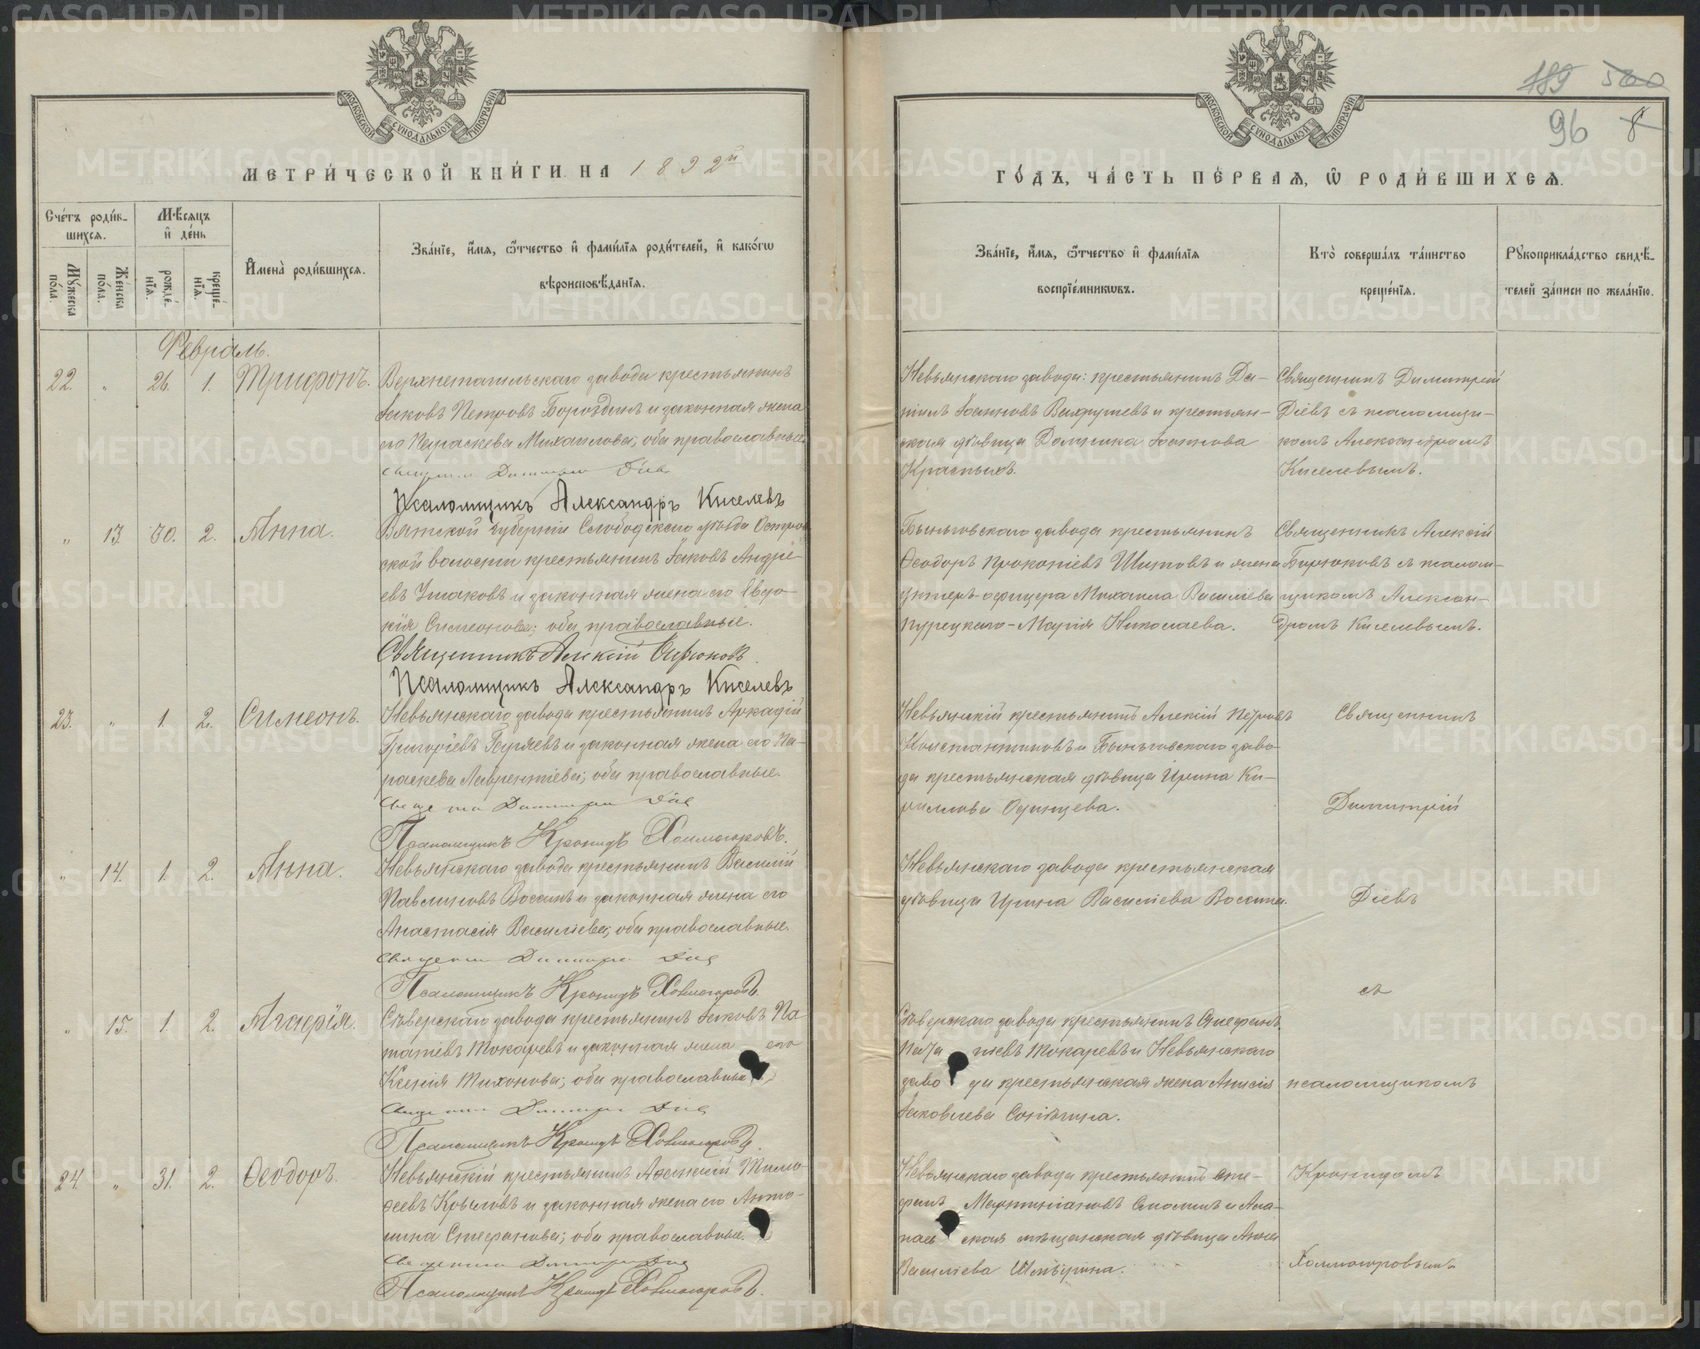 189 500
96 8
МОСКОВСКОЙ СѴНОДАЛЬНОЙ ТИПОГРАФІИ
МОСКОВСКОЙ СѴНОДАЛЬНОЙ ТИПОГРАФІИ
МЕТРИ́ЧЕСКОЙ КНИ́ГИ НА 1892й
ГО́ДЪ, ЧА́СТЬ ПЕ́РВАЯ, Ѡ РОДИ́ВШИХСЯ.
Сче́тъ роди́в-
шихся.
Мѣ́сяцъ
и҆ де́нь
Му́жеска
по́ла
Же́нска
по́ла.
рожде́-
нїя.
креще́-
нїя.
И҆мена̀ роди́вшихся.
Зва́нїе, и҆́мя, ѻ҆́тчество и҆ фами́лїя роди́телей, и҆ како́гѡ
вѣроисповѣ́данїя.
Зва́нїе, и҆́мя, ѻ҆́тчество и҆ фами́лїя
воспрїе́мникѡвъ.
Кто̀ соверша́лъ та́инство
креще́нїя.
Рꙋкоприкла́дство свидѣ́-
телей за́писи по жела́нїю.
Февраль.
22. „ 26. 1. Трифонъ.
Верхнетагильскаго завода крестьянинъ
Іаковъ Петровъ Бороздинъ и законная жена
его Параскева Михаилова, оба православные.
Псаломщикъ Александръ Киселевъ
Невьянскаго завода: крестьянинъ Да-
ніилъ Іоанновъ Вахрушевъ и крестьян-
ская дѣвица Домника Іоаннова
Красныхъ.
Священникъ Димитрій
Діевъ съ псаломщи-
комъ Александромъ
Киселевымъ.
„ 13. 30. 2. Анна.
Вятской губерніи Слободскаго уѣзда Остров-
ской волости крестьянинъ Іаковъ Андре-
евъ Ушаковъ и законная жена его Евдо-
кія Симеонова; оба православные.
Священникъ Алексій Бирюковъ.
Псаломщикъ Александръ Киселевъ
Быньговскаго завода крестьянинъ
Ѳеодоръ Прокопіевъ Шитовъ и жена
унтеръ-офицера Михаила Василіева
Пурецкаго - Марія Николаева.
Священникъ Алексій
Бирюковъ съ псалом-
щикомъ Алексан-
дромъ Киселевымъ.
23. „ 1. 2. Симеонъ.
Невьянскаго завода крестьянинъ Аркадій
Григоріевъ Буряевъ и законная жена его Па-
раскева Лаврентіева; оба православные.
Псаломщикъ Кронидъ Холмогоровъ.
Невьянскій крестьянинъ Алексій Петровъ
Константиновъ и Быньговскаго заво-
да крестьянская дѣвица Ирина Ки-
риллова Одинцева.
Священникъ
Димитрій
„ 14. 1. 2. Анна.
Невьянскаго завода крестьянинъ Василій
Павлиновъ Воссинъ и законная жена его
Анастасія Василіева; оба православные.
Псаломщикъ Кронидъ Холмогоровъ
Невьянскаго завода крестьянская
дѣвица Ирина Василіева Воссина.
Діевъ
съ
„ 15. 1. 2. Агафія.
Сѣверскаго завода крестьянинъ Іаковъ Па-
Токаревъ и законная жена его
Ксенія Тихонова; оба православные
Псаломщикъ Кронидъ Холмогоровъ.
Сѣверскаго завода крестьянинъ Стефанъ
Токаревъ и Невьянскаго
завода крестьянская жена Анисія
Іаковлева
псаломщикомъ
24. „ 31. 2. Ѳеодоръ.
Невьянскій крестьянинъ Алексій Тимо-
ѳеевъ Крыловъ и законная жена его Анто-
нина Стефанова; оба православные.
Псаломщикъ Кронидъ Холмогоровъ.
Невьянскаго завода крестьянинъ Сте-
фанъ Мартиніановъ и Ала-
паевская мѣщанская дѣвица Анна
Василіева
Кронидомъ
Холмогоровымъ